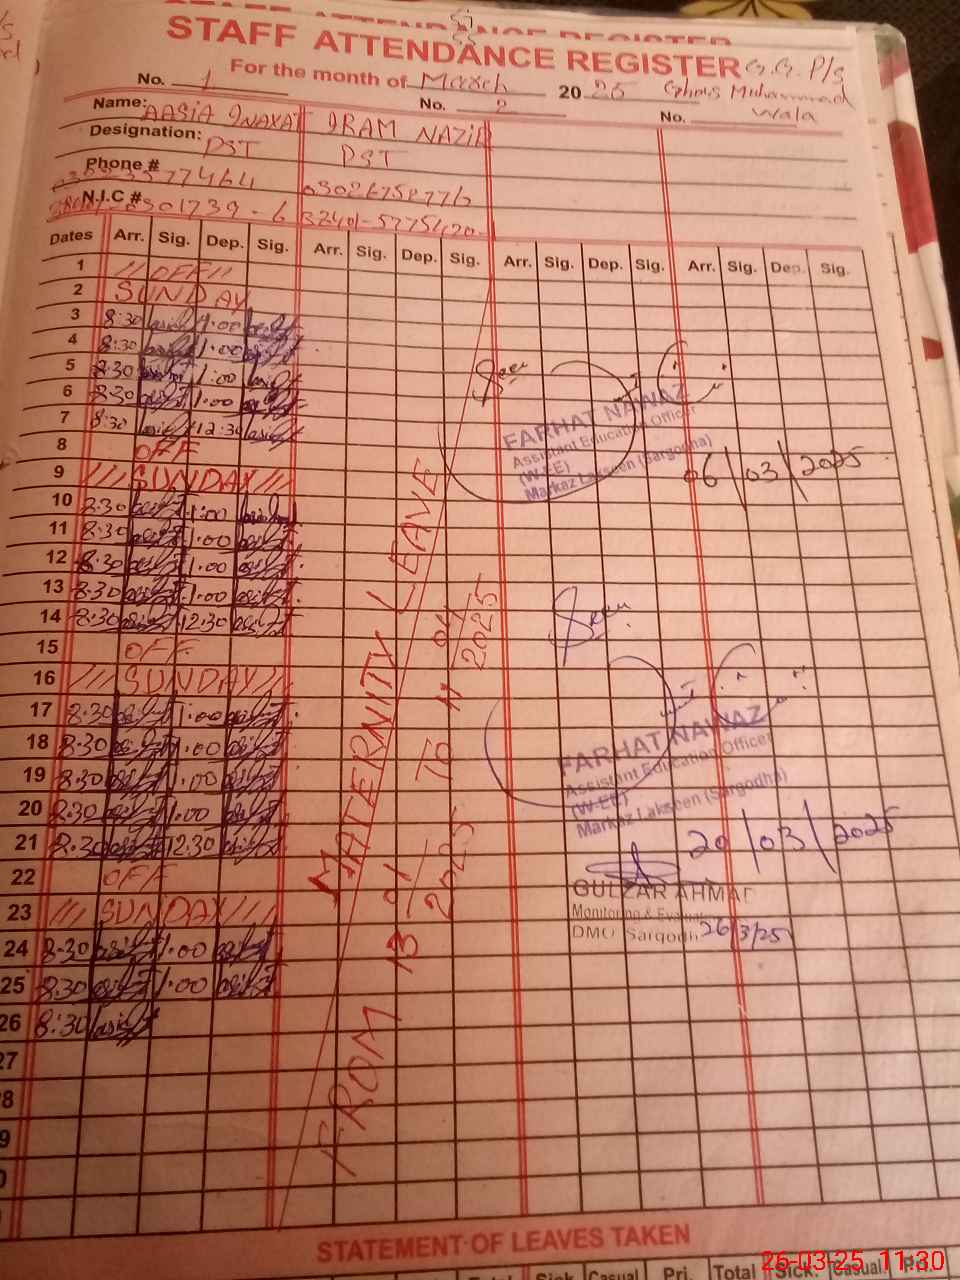 STAFF ATTENDANCE REGISTER
G.G. P/S
For the month of March 2025
Ghous Muhammad
Wala
No. 1 No. 2 No.
Name: AASIA INAYAT IRAM NAZIR
Designation: PST PST
Phone # 77464 03026758776
N.I.C # 301739-6 32401-5775420-
Dates Arr. Sig. Dep. Sig. Arr. Sig. Dep. Sig. Arr. Sig. Dep. Sig. Arr. Sig. Dep. Sig.
1 //OFF//
2 SUNDAY
3 8:30 1:00
4 8:30 1:00
5 8:30 1:00
6 8:30 1:00
7 8:30 12:30
8 OFF
9 //// SUNDAY ////
10 8:30 1:00
11 8:30 1:00
12 8:30 1:00
13 8:30 1:00
14 8:30 12:30
15 OFF
16 /// SUNDAY //
17 8:30 1:00
18 8:30 1:00
19 8:30 1:00
20 8:30 1:00
21 8:30 12:30
22 OFF
23 /// SUNDAY ////
24 8:30 1:00
25 8:30 1:00
26 8:30
27
MATERNITY LEAVE
FROM 13 01/2025 TO 11 04/2025
Seen
FARHAT NAWAZ
Assistant Education Officer
(W-EE)
Markaz Lakseen (Sargodha)
06/03/2025
Seen
FARHAT NAWAZ
Assistant Education Officer
(W-EE)
Markaz Lakseen (Sargodha)
20/03/2025
GULZAR AHMAD
Monitoring &
DMO Sargodh
26/3/25
STATEMENT OF LEAVES TAKEN
Total Sick Casual Pri. Total Sick. Casual. Pri.
26-03-25 11:30